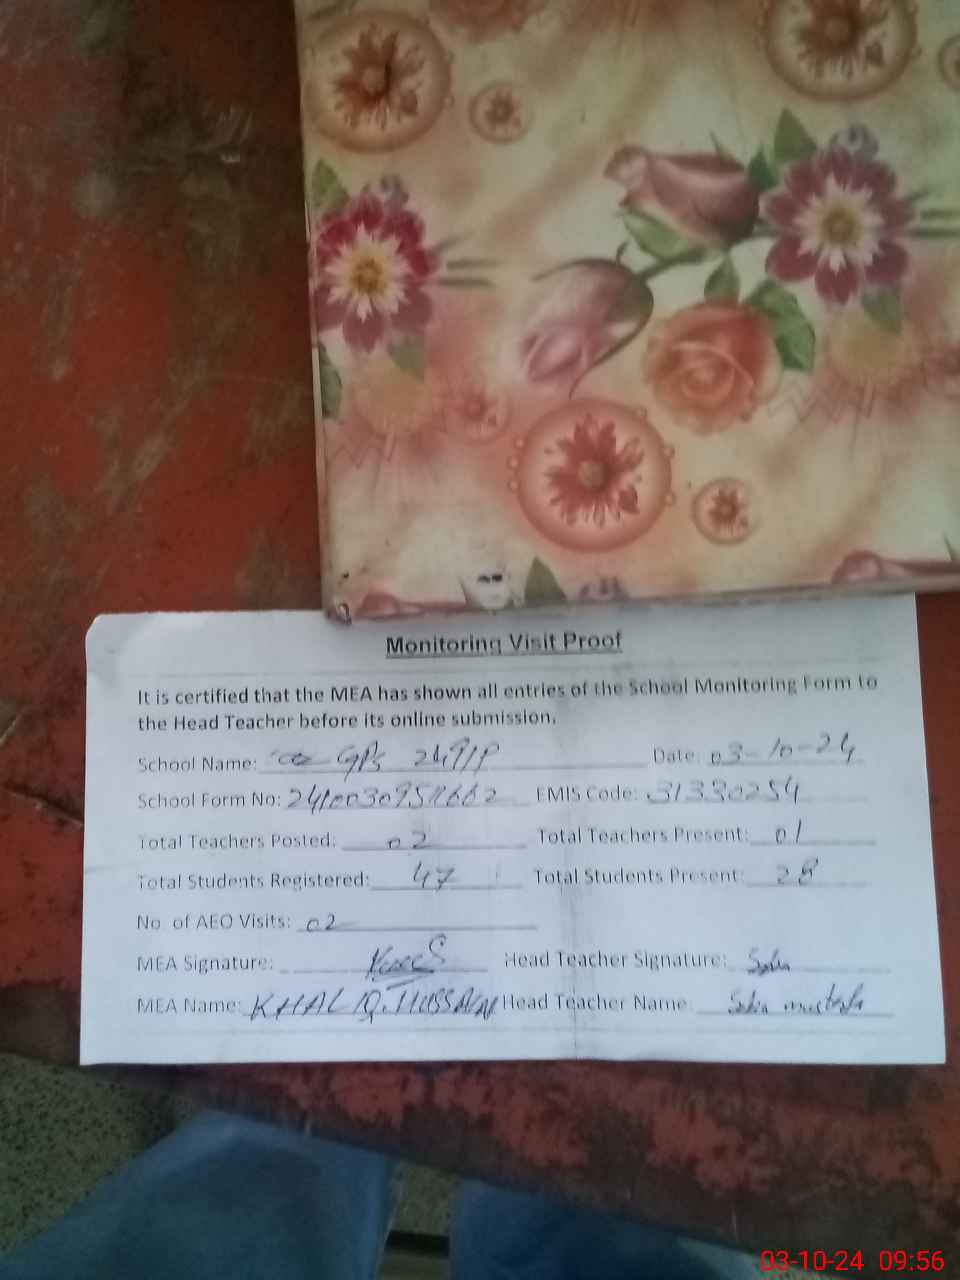 Monitoring Visit Proof
It is certified that the MEA has shown all entries of the School Monitoring Form to
the Head Teacher before its online submission.
School Name: GPS Date: 03-10-24
School Form No: EMIS Code: 31330254
Total Teachers Posted: 02 Total Teachers Present: 01
Total Students Registered: 47 Total Students Present: 28
No. of AEO Visits: 02
MEA Signature: Head Teacher Signature:
MEA Name: KHALIQ.HUSSAIN Head Teacher Name
03-10-24 09:56